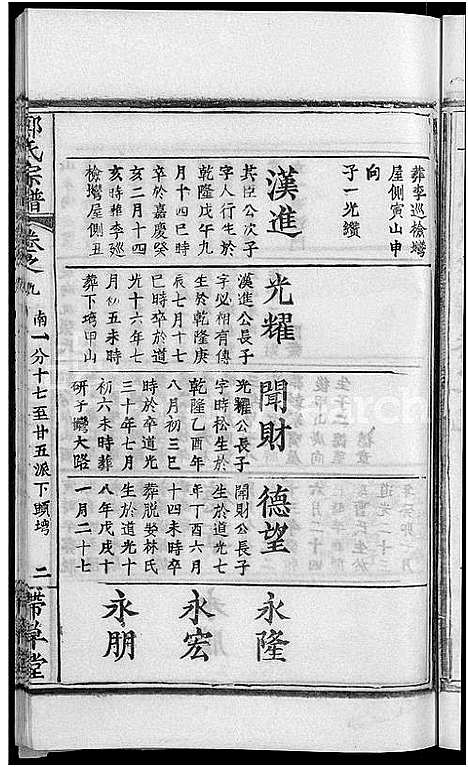 葬李巡檢塆
屋側寅山申
向
子一光纘
漢進
共臣公次子
字人行生於
乾隆戊午九
月十四巳時
卒於嘉慶癸
亥二月十四
亥時葬李巡
檢塆屋側丑
光耀
漢進公長子
字必相有傳
生於乾隆庚
辰七月十七
巳時卒於道
光十六年七
月初五未時
葬下塆甲山
聞財
光耀公長子
字時松生於
乾隆乙酉年
八月初三巳
時於卒道光
三十年七月
初六未時葬
研子塆大路
德望
開財公長子
生於道光七
年丁酉六月
十四未時卒
葬脱娶林氏
生於道光十
八年戊戌十
一月二十七
永隆
永宏
永朋
郭氏宗譜
卷之九
南一分十七至廿五派下頭塆
二
帶草堂